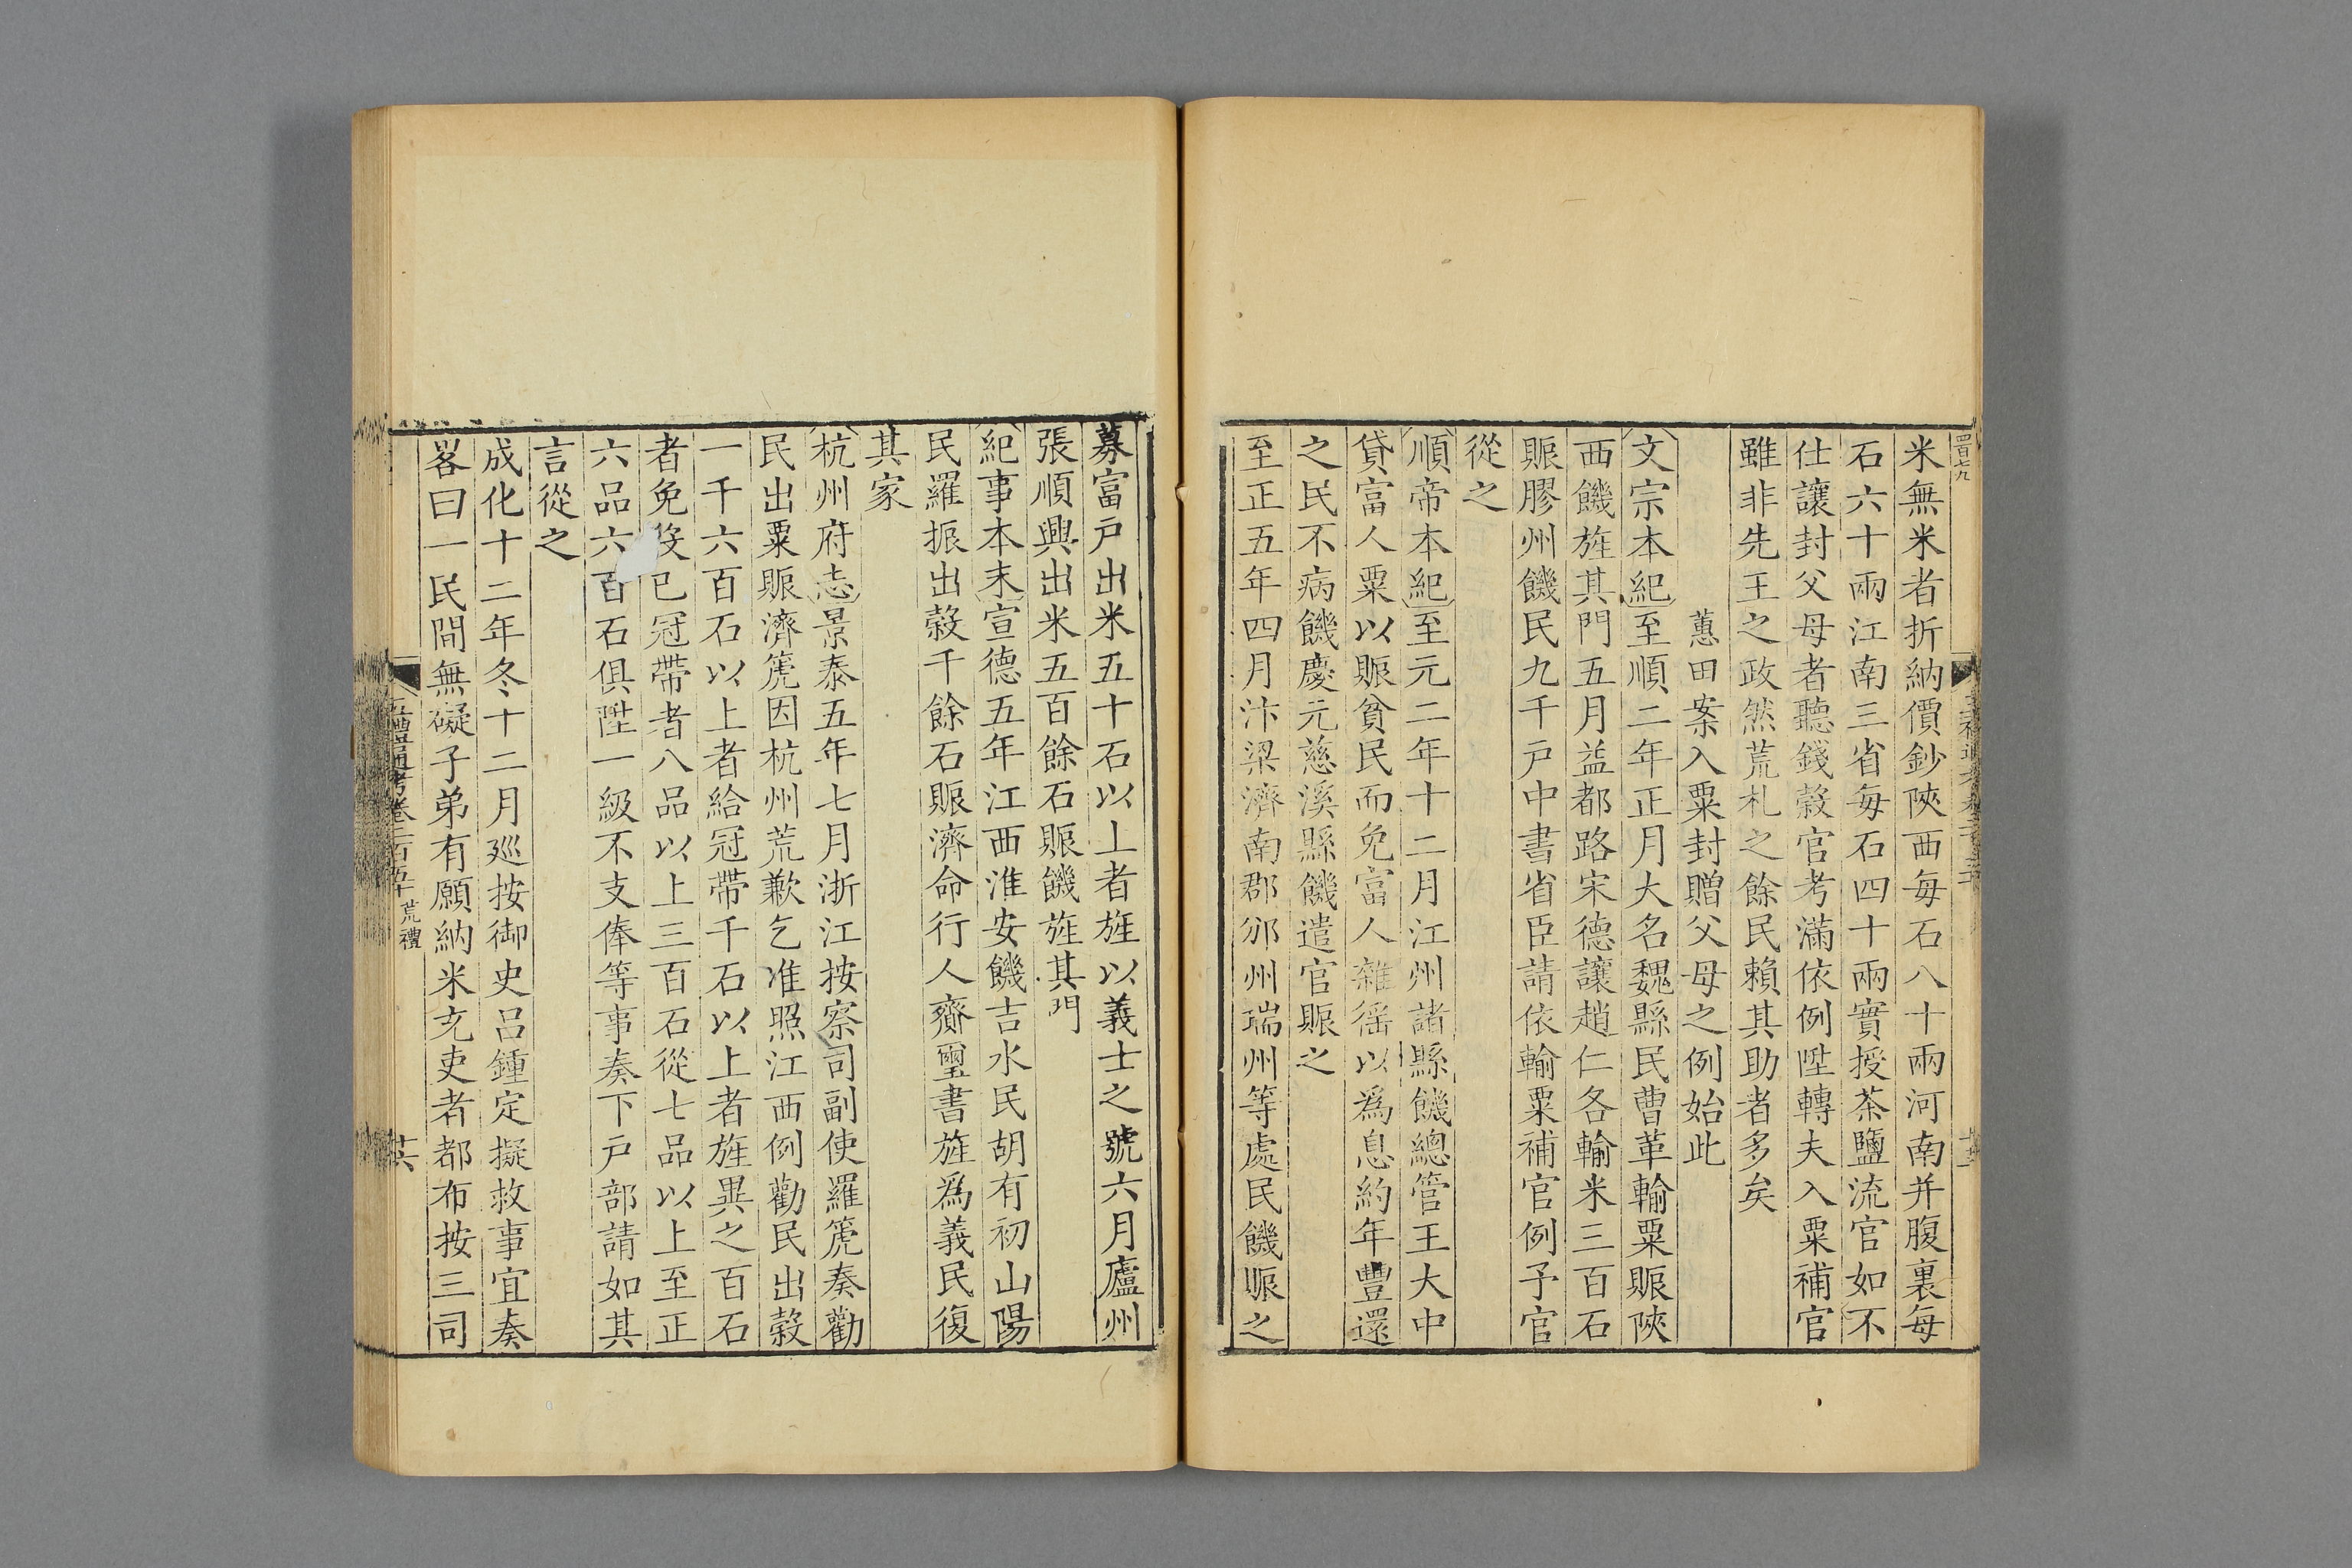 米無米者折納價鈔陝西每石八十兩河南并腹裏每
石六十兩江南三省每石四十兩實授茶鹽流官如不
仕讓封父母者聽錢榖官考滿依例陞轉夫入粟補官
雖非先王之政然荒札之餘民賴其助者多矣
蕙田案入粟封贈父母之例始此
文宗本紀至順二年正月大名魏縣民曹革輸粟賑陝
西饑旌其門五月益都路宋德讓趙仁各輸米三百石
賑膠州饑民九千戸中書省臣請依輸粟補官例予官
從之
順帝本紀至元二年十二月江州諸縣饑總管王大中
貸富人粟以賑貧民而免富人雜徭以爲息約年豐還
之民不病饑慶元慈溪縣饑遣官賑之
至正五年四月汴梁濟南郡邠州瑞州等處民饑賑之
募富戸出米五十石以上者旌以義士之號六月廬州
張順興出米五百餘石賑饑旌其門
紀事本末宣德五年江西淮安饑吉水民胡有初山陽
民羅振出榖千餘石賑濟命行人齎璽書旌爲義民復
其家
杭州府志景泰五年七月浙江按察司副使羅箎奏勸
民出粟賑濟箎因杭州荒歉乞准照江西例勸民出榖
一千六百石以上者給冠帶千石以上者旌異之百石
者免役已冠帶者八品以上三百石從七品以上至正
六品六百石俱陞一級不支俸等事奏下戸部請如其
言從之
成化十二年冬十二月廵按御史吕鍾定擬救事宜奏
畧曰一民間無礙子弟有願納米充吏者都布按三司
五禮通考卷二百五十 荒禮